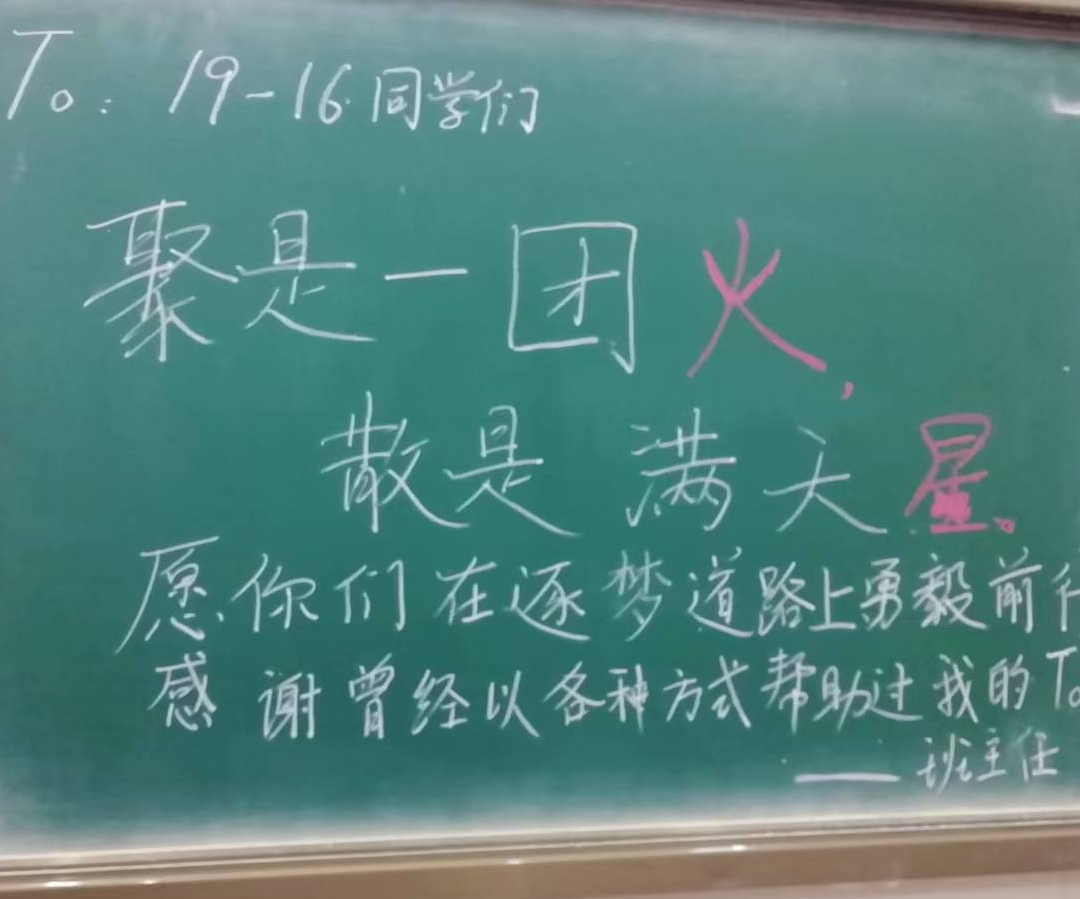 To: 19-16同学们
聚是一团火,
散是满天星。
愿你们在逐梦道路上勇毅前行
感谢曾经以各种方式帮助过我的To
——班主任